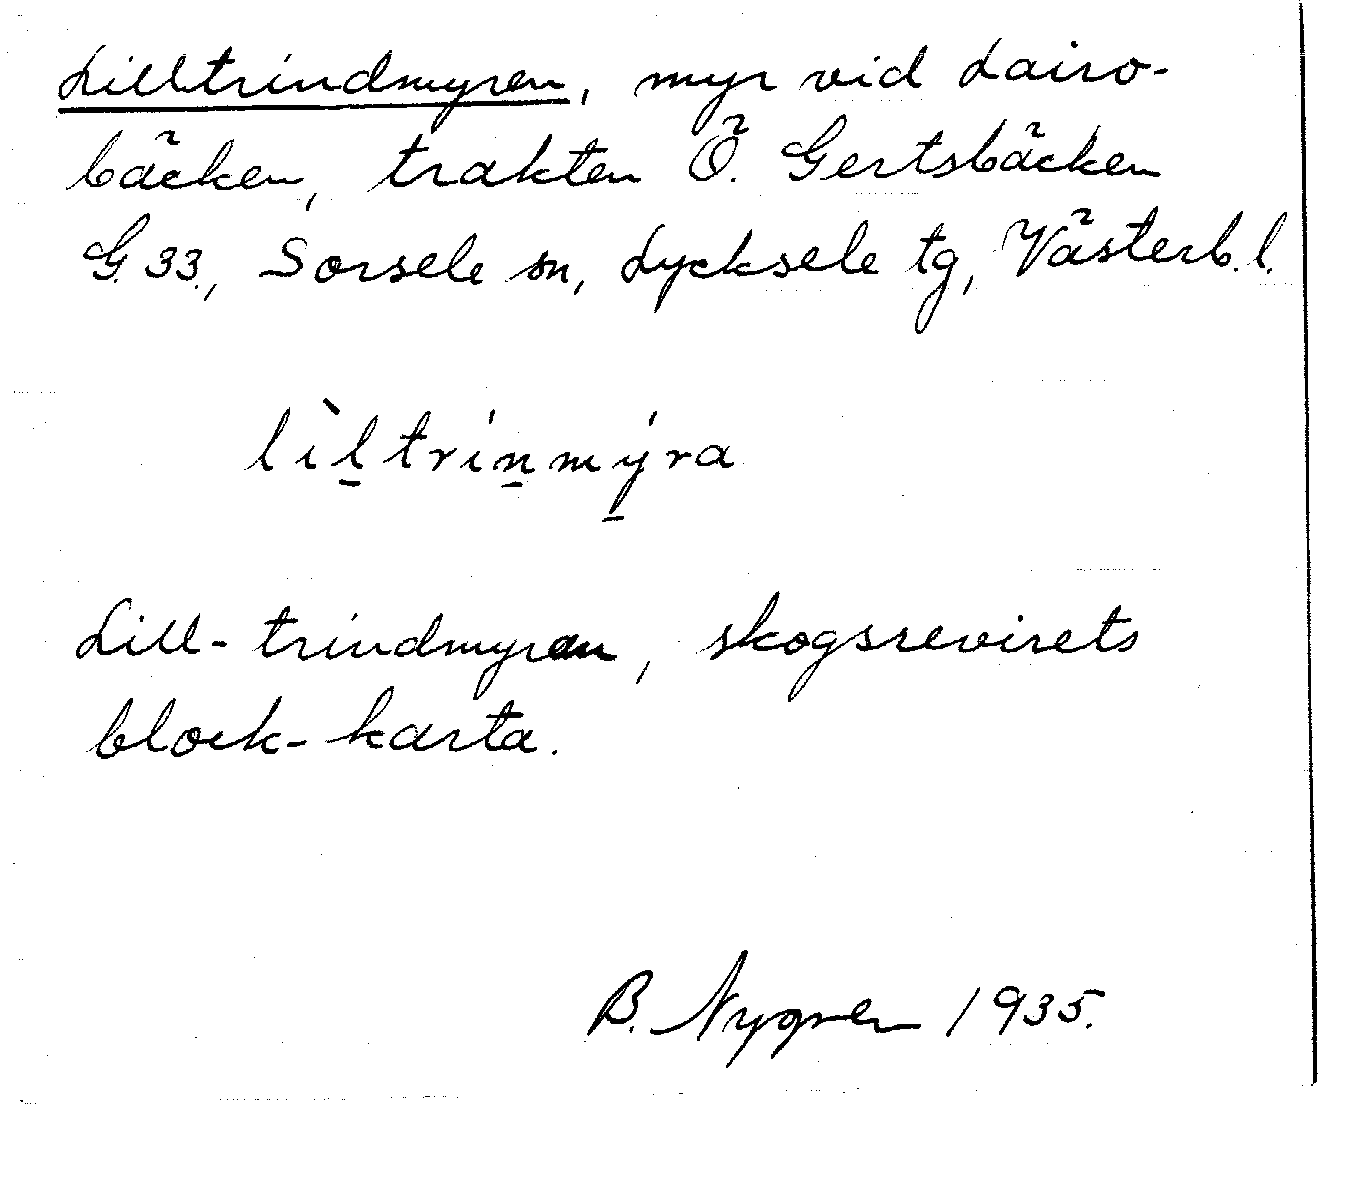 Lilltrindmyren, myr vid Lairo-
bäcken, trakten Ö. Gertsbäcken
G. 33., Sorsele sn, Lycksele tg, Västerb. l.
lìl̠trín̠mý̠ra
Lill-trindmyran, skogsrevirets
block-karta.
B. Nygren 1935.